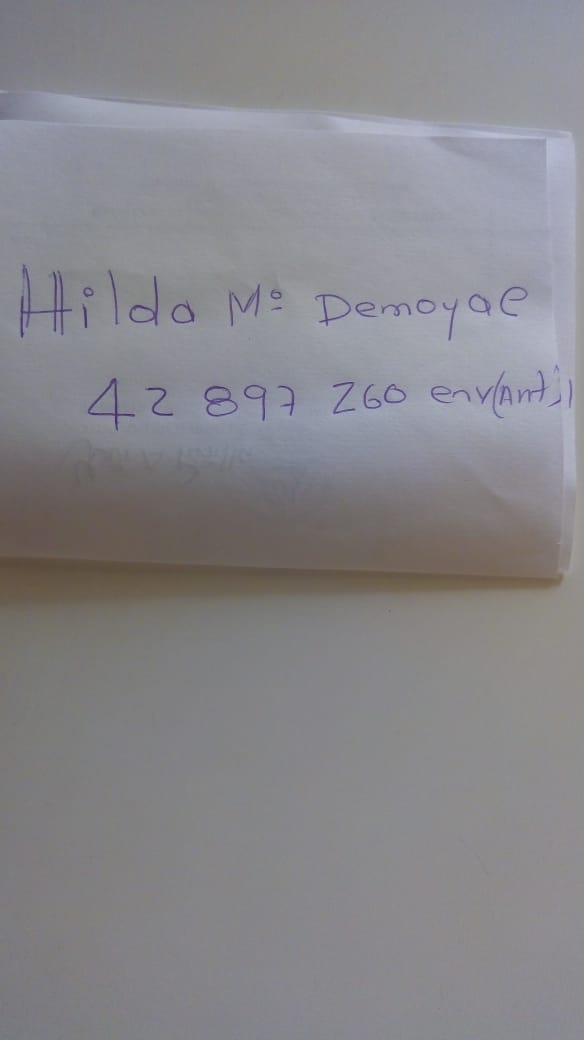 Hilda Mº Demoyae
42 897 260 env(Ant)